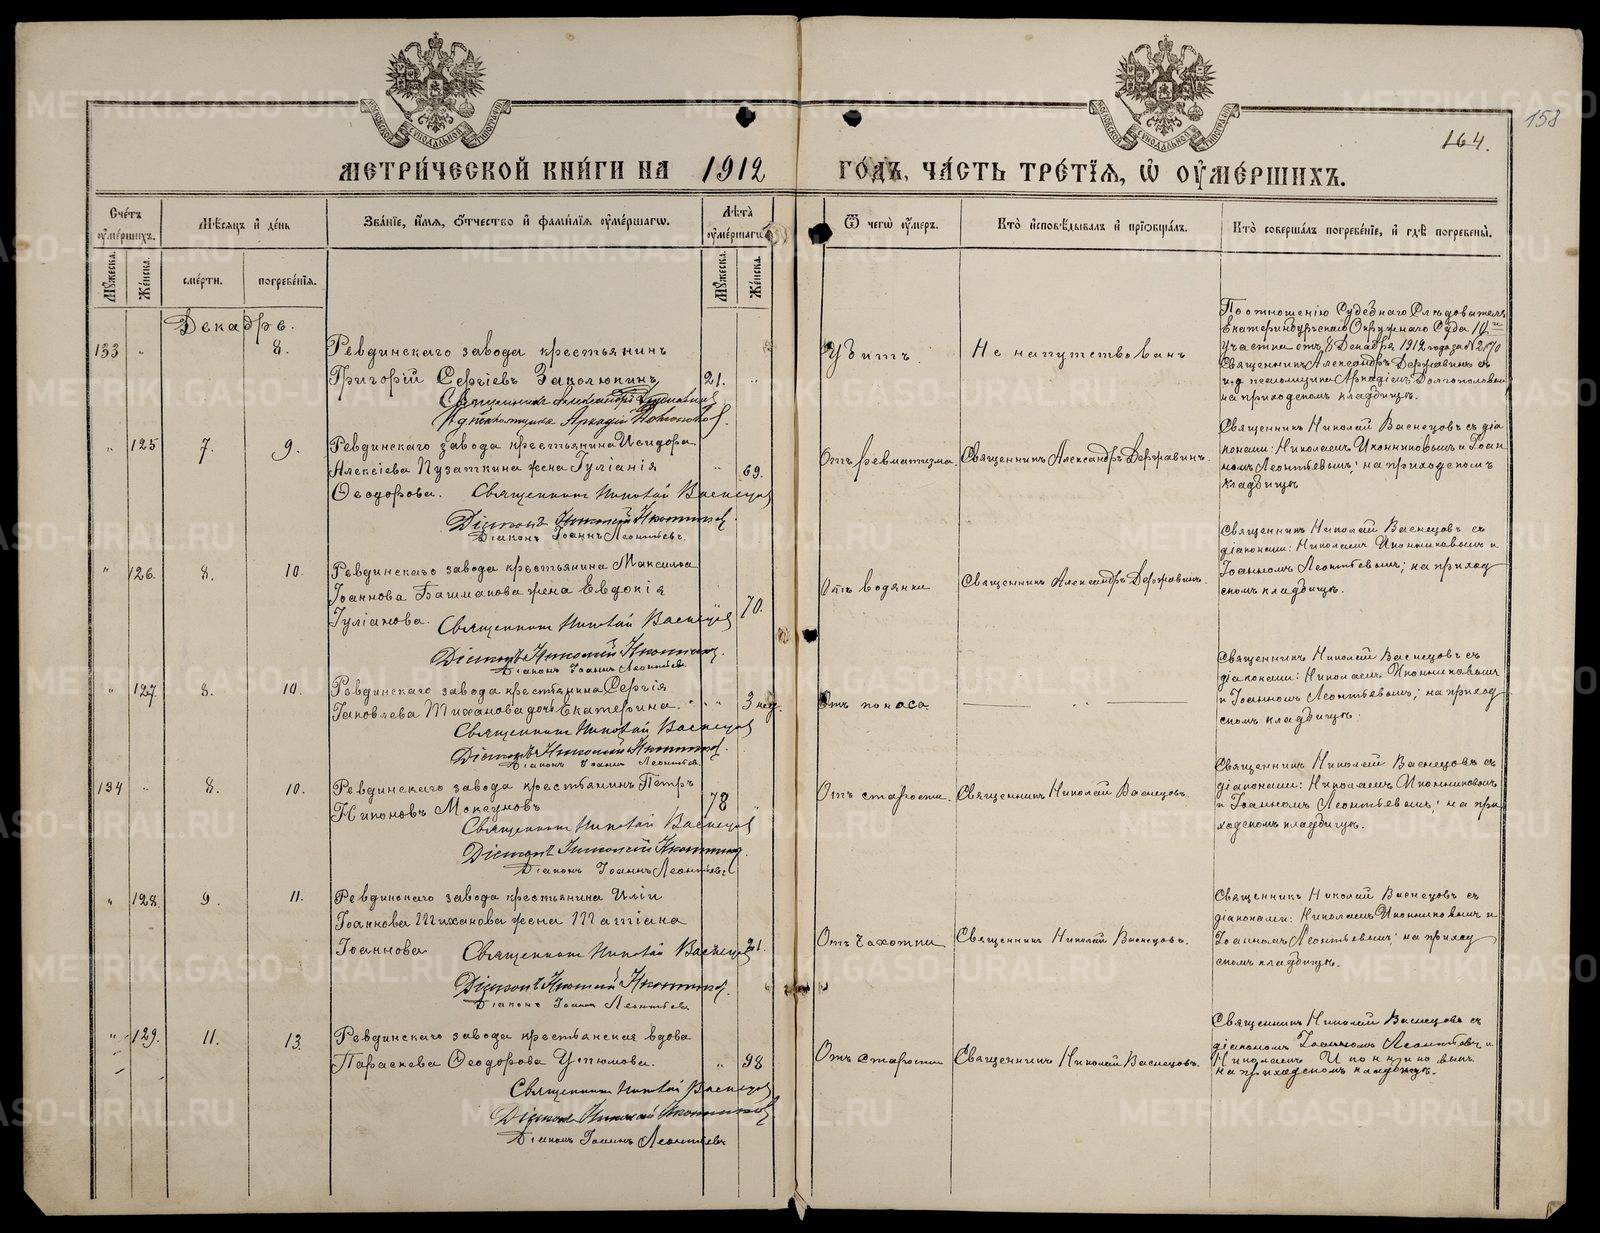 158
164.
МОСКОВСКОЙ СѴНОДАЛЬНОЙ ТИПОГРАФІИ
МОСКОВСКОЙ СѴНОДАЛЬНОЙ ТИПОГРАФІИ
МЕТРИ́ЧЕСКОЙ КНИ́ГИ НА 1912 ГО́ДЪ, ЧА́СТЬ ТРЕ́ТІѦ, Ѡ ОУМЕ́РШИХЪ.
Сче́тъ оумершихъ.
Мѣсяцъ и де́нь
Зва́ніе, и́мя, о́тчество и фами́лія оуме́ршагѡ.
Лѣта̀ оуме́ршагѡ
Ѿ чегѡ̀ оу́меръ.
Кто̀ исповѣ́дывалъ и пріѡбща́лъ.
Кто̀ соверша́лъ погребе́ніе, и гдѣ̀ погребены̀.
Мужеска.
Же́нска.
сме́рти.
погребе́нія.
Мужеска.
Же́нска.
Декабрь.
133 " 8.
Ревдинскаго завода крестьянинъ
Григорій Сергіевъ Заколюкинъ 21. "
Убитъ.
Не напутствованъ
По отношенію Судебнаго Слѣдователя
Екатеринбургскаго Окружнаго Суда
участка отъ 8 Декабря 1912 года за № 2170
Священникъ Александръ Державинъ съ
и.д. псаломщика Аркадіемъ
на приходскомъ кладбищѣ.
" 125 7. 9.
Ревдинскаго завода крестьянина Исидора
Алексіева Пузаткина жена Іуліанія " 69.
Ѳеодорова. Священникъ Николай Васнецовъ
Діаконъ Николай Иконниковъ
Діаконъ Іоаннъ Леонтьевъ.
Отъ ревматизма.
Священникъ Александръ Державинъ.
Священникъ Николай Васнецовъ съ діа
конами: Николаемъ Иконниковымъ и Іоан
номъ Леонтьевымъ; на приходскомъ
кладбищѣ
" 126. 8. 10.
Ревдинскаго завода крестьянина Максима
Іоаннова Башмакова жена Евдокія
Іуліанова. Священникъ Николай Васнецовъ 70.
Діаконъ Николай Иконниковъ.
Діаконъ Іоаннъ Леонтьевъ.
Отъ водянки
Священникъ Александръ Державинъ.
Священникъ Николай Васнецовъ съ
діаконами: Николаемъ Иконниковымъ и
Іоанномъ Леонтьевымъ; на приход
скомъ кладбищѣ.
" 127. 8. 10.
Ревдинскаго завода крестьянина Сергія
Іаковлева Тиханова дочь Екатерина. " " 3 нед.
Священникъ Николай Васнецовъ
Діаконъ Николай Иконниковъ.
Діаконъ Іоаннъ Леонтьевъ
Отъ поноса.
Священникъ Николай Васнецовъ съ
діаконами: Николаемъ Иконниковымъ
и Іоанномъ Леонтьевымъ; на приход
скомъ кладбищѣ.
134 " 8. 10.
Ревдинскаго завода крестьянинъ Петръ
Никоновъ Мокеуновъ 78 "
Священникъ Николай Васнецовъ
Діаконъ Николай Иконниковъ.
Діаконъ Іоаннъ Леонтьевъ
Отъ старости.
Священникъ Николай Васнецовъ.
Священникъ Николай Васнецовъ съ
діаконами: Николаемъ Иконниковымъ
и Іоанномъ Леонтьевымъ; на при
ходскомъ кладбищѣ.
" 128. 9. 11.
Ревдинскаго завода крестьянина Иліи
Іоаннова Тиханова жена Татіана
Іоаннова Священникъ Николай Васнецовъ 21.
Діаконъ Николай Иконниковъ.
Діаконъ Іоаннъ Леонтьевъ
Отъ чахотки
Священникъ Николай Васнецовъ.
Священникъ Николай Васнецовъ съ
діаконами: Николаемъ Иконниковымъ и
Іоанномъ Леонтьевымъ; на приход
скомъ кладбищѣ.
" 129. 11. 13.
Ревдинскаго завода крестьянская вдова
Параскева Ѳеодорова Утюмова. " 98
Священникъ Николай Васнецовъ
Діаконъ Николай Иконниковъ
Діаконъ Іоаннъ Леонтьевъ
Отъ старости
Священникъ Николай Васнецовъ.
Священникъ Николай Васнецовъ съ
діакономъ Іоанномъ Леонтьев. и
Николаемъ Иконниковымъ.
на приходскомъ кладбищѣ.
METRIKI.GASO-URAL.RU